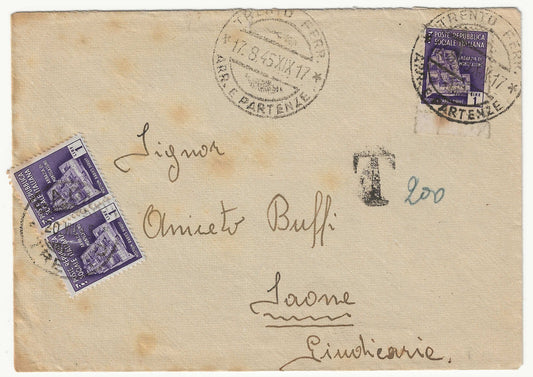 TRENTO FERR.
* 17.8.45 XIX 17 *
ARR. E PARTENZE
TRENTO FERR.
17
ARR. E PARTENZE
POSTE REPUBBLICA
SOCIALE ITALIANA
1
T
200
Signor
Aniceto Buffi
Saone
Giudicarie.
POSTE REPUBBLICA
SOCIALE ITALIANA
1
POSTE REPUBBLICA
SOCIALE ITALIANA
1